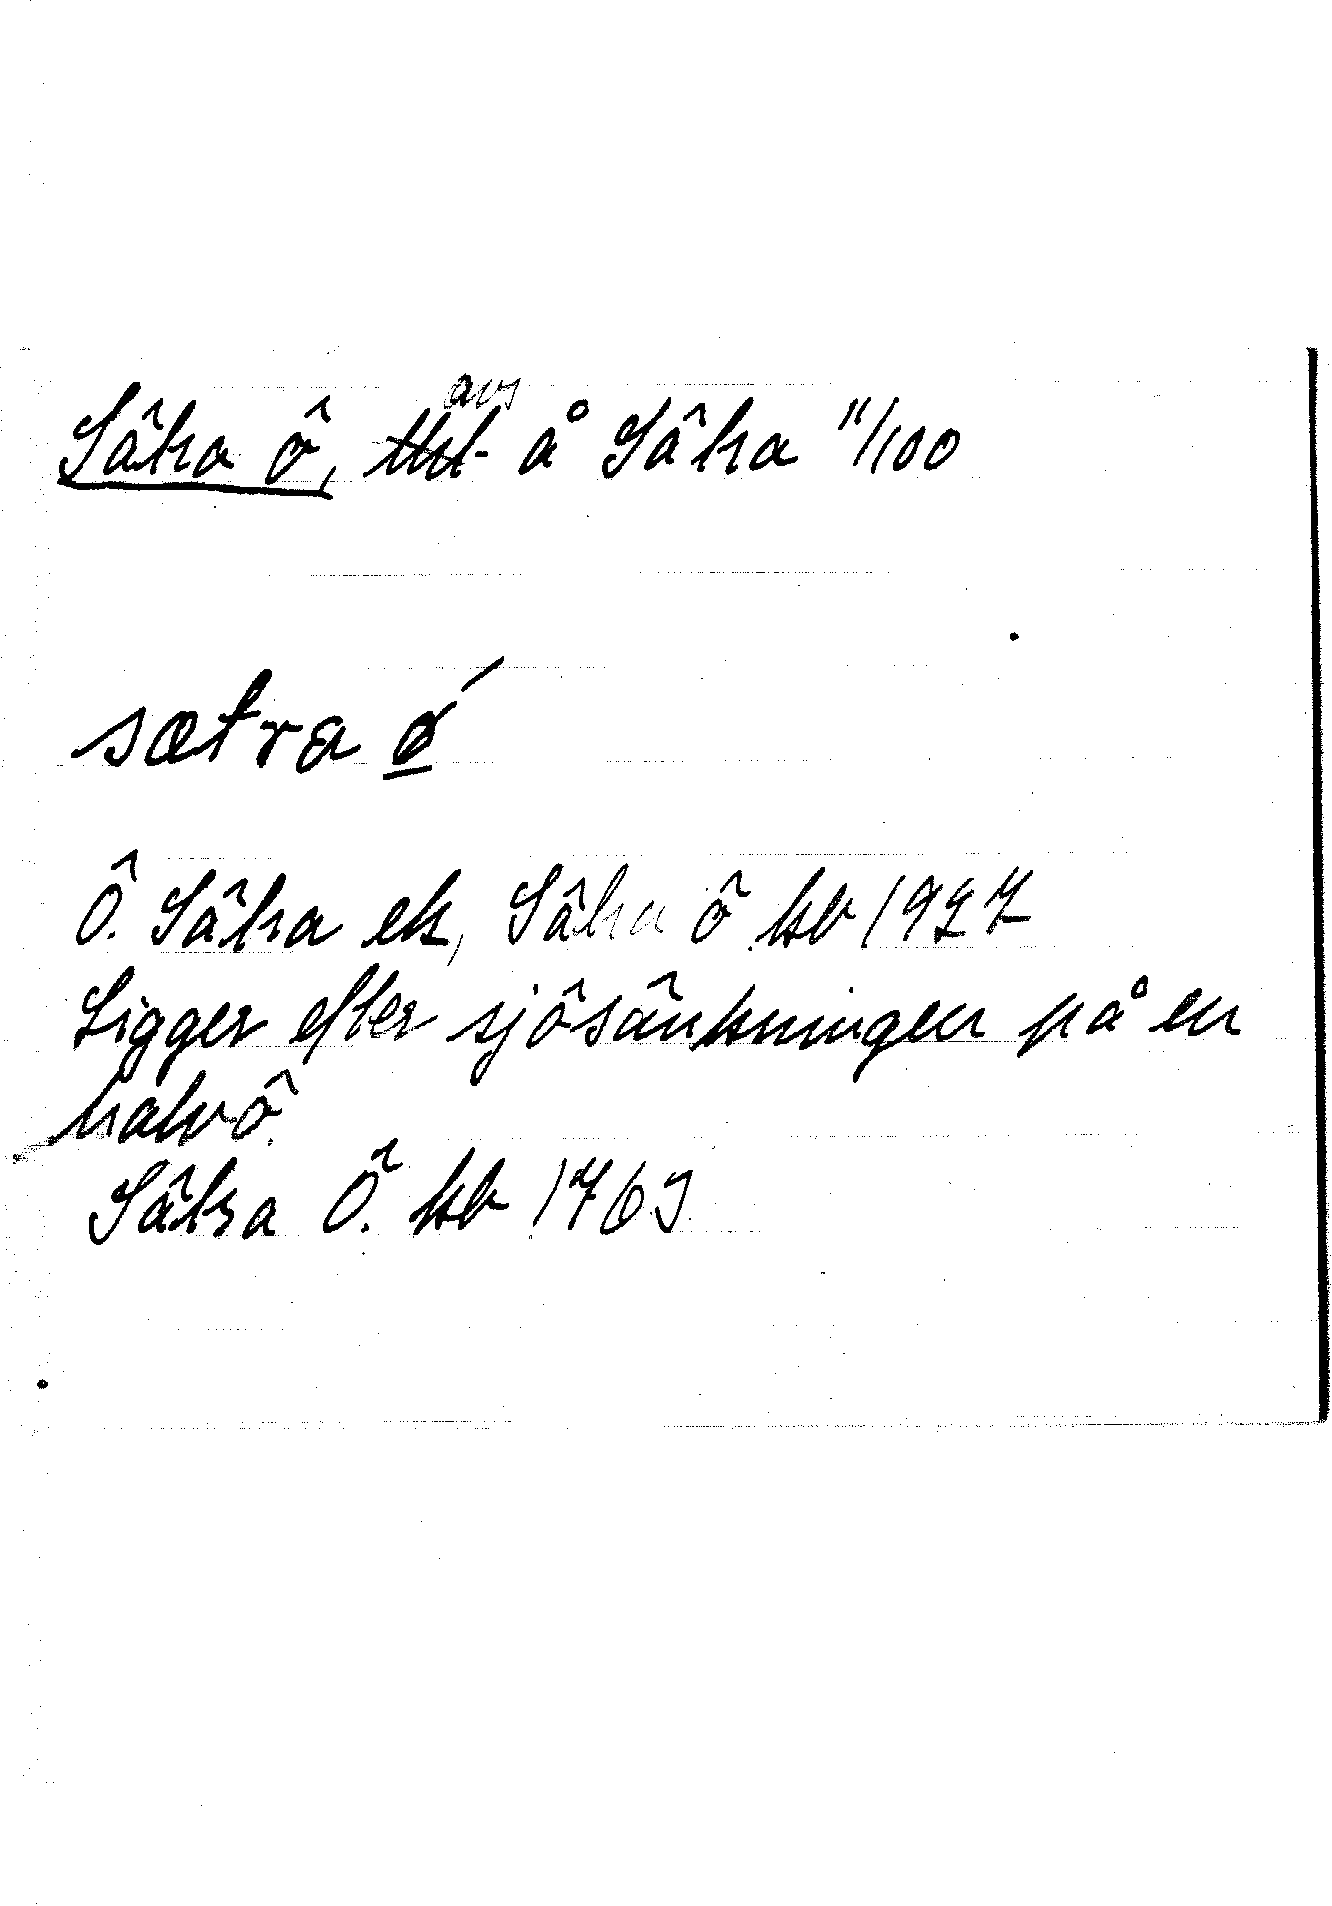 Sätra ö, avs å Sätra 11/100
sætra ǿ
Ö. Sätra ek, Sätra ö kb 1927
Ligger efter sjösänkningen på en
halvö.
Sätra Ö. kb 1763